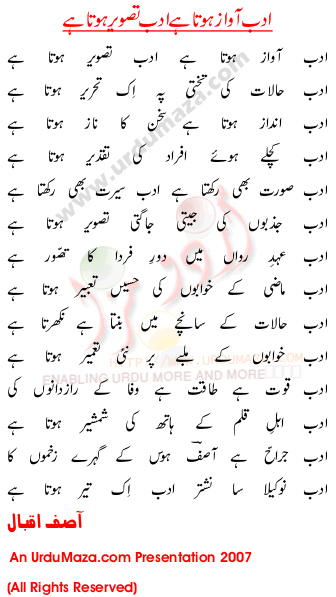 ادب آواز ہوتا ہے ادب تصویر ہوتا ہے
ادب آواز ہوتا ہے ادب تصویر ہوتا ہے
ادب حالات کی تختی پہ اِک تحریر ہوتا ہے
ادب انداز ہوتا ہے سخن کا ناز ہوتا ہے
ادب کچلے ہوئے افراد کی تقدیر ہوتا ہے
ادب صورت بھی رکھتا ہے ادب سیرت بھی رکھتا ہے
ادب جذبوں کی جیتی جاگتی تصویر ہوتا ہے
ادب عہدِ رواں میں دورِ فردا کا تصّور ہے
ادب ماضی کے خوابوں کی حسیں تعبیر ہوتا ہے
ادب حالات کے سانچے میں بنتا ہے نکھرتا ہے
ادب خوابوں کے ملبے پر نئی تعمیر ہوتا ہے
ادب قوت ہے طاقت ہے وفا کے رازدانوں کی
ادب اہلِ قلم کے ہاتھ کی شمشیر ہوتا ہے
ادب جراح ہے آصفؔ ہوس کے گہرے زخموں کا
ادب نوکیلا سا نشتر ادب اِک تیر ہوتا ہے
آصف اقبال
An UrduMaza.com Presentation 2007
(All Rights Reserved)
www.urdumaza.com
اردو مزا
HTTP://UrduMaza.COM
ENABLING URDU MORE AND MORE